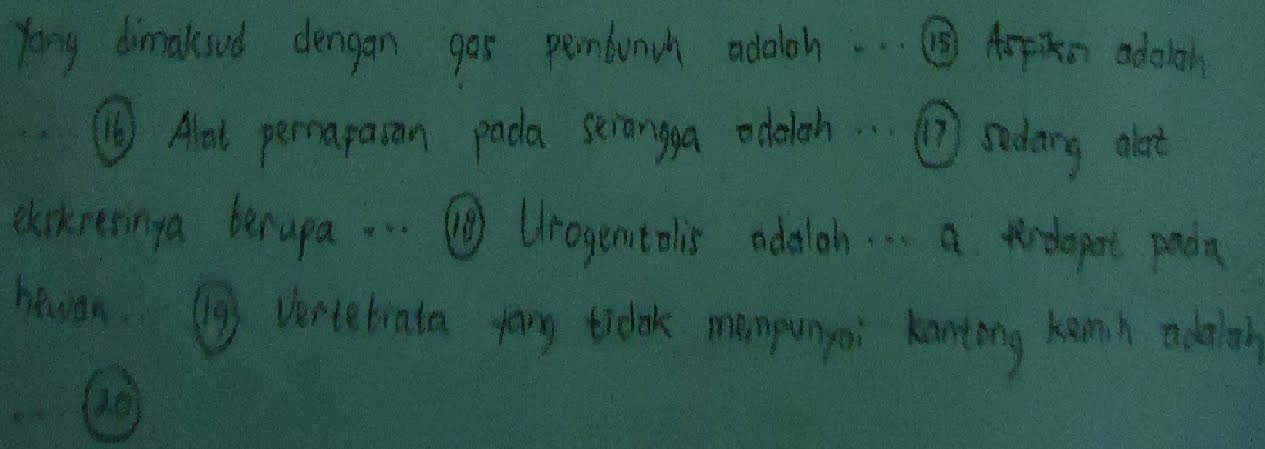 Yang dimaksud dengan gas pembunuh adalah ... (15) Asfiksi adalah
... (16) Alat pernafasan pada serangga adalah ... (17) sedang alat
ekskresinya berupa ... (18) Urogenitalis adalah ... a terdapat pada
hewan.. (19) Vertebrata yang tidak mempunyai kantong kemih adalah
... (20)